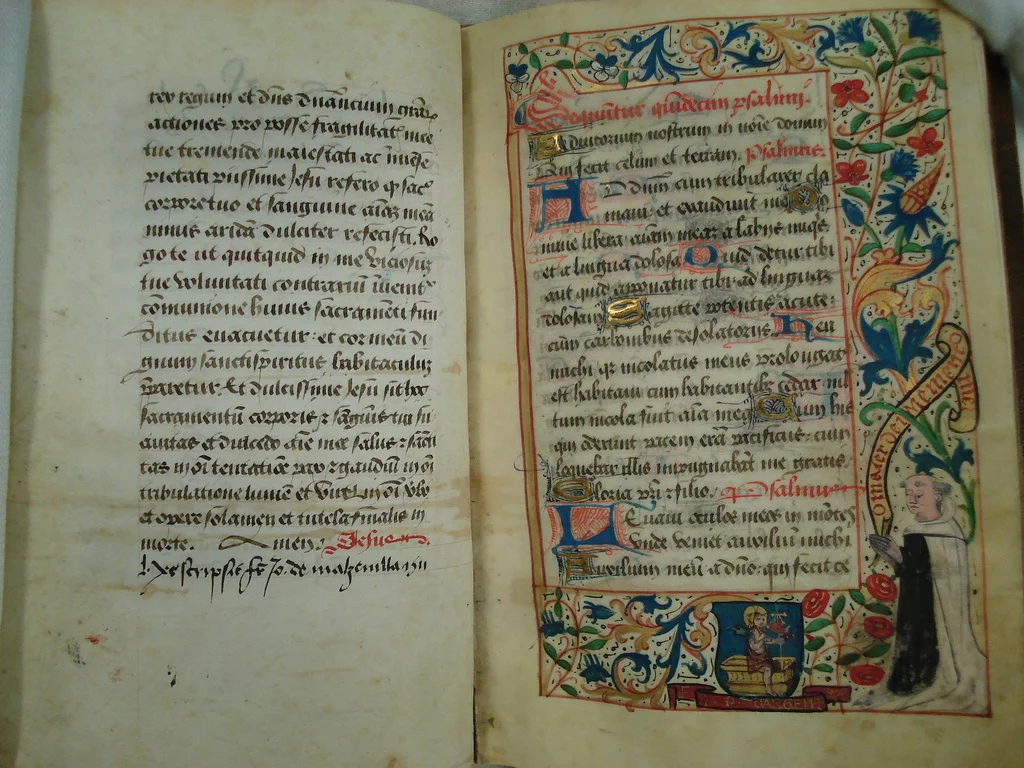 rex regum et dns dnancium grãr
actiones pro posse fragilitatis mee
tue tremende maiestati ac immẽse
pietati piissime Jesu refero qꝫ sac̃
corpore tuo et sanguine aĩaꝫ meã
nimis aridã dulciter refecisti. Ro
go te ut quitquid in me viciosũ
tue voluntati contrariũ Iuenit̃
cõmunione huius sacramẽti fun
ditus evacuetur: et cor meũ di
gnum sanctispiritus habitaculũ
ꝑparetur. Et dulcissime Jesu sit hoc
sacramentũ corporis ⁊ sãguis tui su
avitas et dulcedo aĩe mee salus ⁊ sãcti
tas in oĩ tentatiõe pax ⁊ gaudiũ in oĩ
tribulatione lumẽ et virtꝰ in oĩ vbo
et opere solamen et tutela finalis in
morte. Amen: Jesus
scripsit fr̃ Jo. de
Sequntur quĩdecim psalmi.
Adiutorium nostrum in noĩe domini
Qui fecit celum et terram. Psalmus.
AD Dnm cum tribularer cla
mavi: et exaudivit me
mine libera aĩam meaꝫ a labijs iniqꝭ
et a lingua dolosa Quid detur tibi
aut quid apponatur tibi: ad linguaꝫ
dolosam Sagitte potentis acute:
cum carbonibus desolatorijs Heu
michi qꝛ incolatus meus prolõugatꝰ
est habitavi cum habitantibꝫ cedar: mul
tum incola fuit aĩa mea Cum his
qui oderunt pacem erã pacificus: cum
loquebar illis impugnabãt me gratis
Gloria pr̃i ⁊ filio. Psalmus
LEvavi oculos meos in mõtes
unde veniet auxiliũ michi
Auxilium meũ a dño: qui fecit ce
o mater dei memento mei